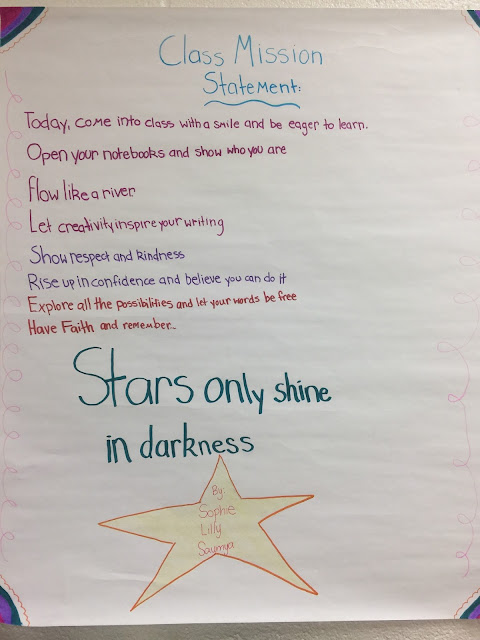 Class Mission
Statement:
Today, come into class with a smile and be eager to learn.
Open your notebooks and show who you are
flow like a river
Let creativity inspire your writing
Show respect and kindness
Rise up in confidence and believe you can do it
Explore all the possibilities and let your words be free
Have Faith and remember...
Stars only shine
in darkness
By:
Sophie
Lilly
Saumya